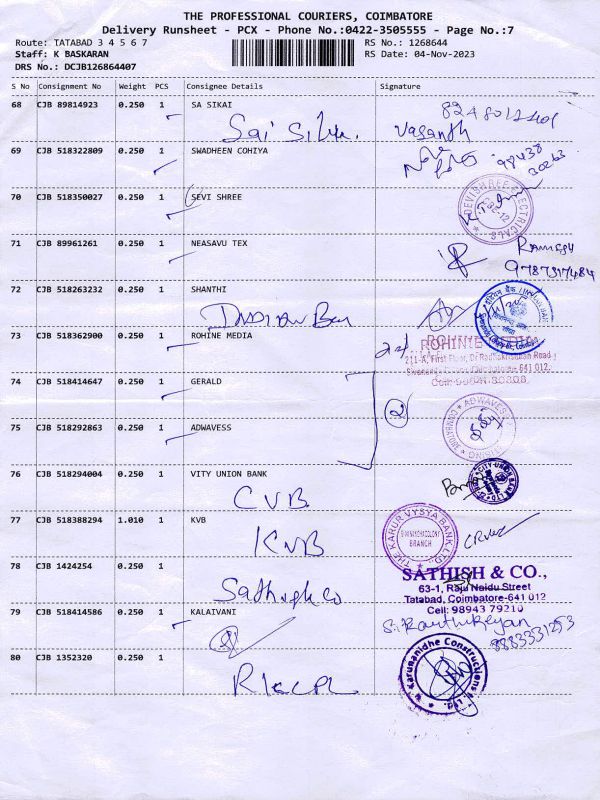 THE PROFESSIONAL COURIERS, COIMBATORE
Delivery Runsheet - PCX - Phone No.:0422-3505555 - Page No.:7
Route: TATABAD 3 4 5 6 7 RS No.: 1268644
Staff: K BASKARAN RS Date: 04-Nov-2023
DRS No.: DCJB126864407
S No Consignment No Weight PCS Consignee Details Signature
68 CJB 89814923 0.250 1 SA SIKAI
Vasanth
69 CJB 518322809 0.250 1 SWADHEEN COHIYA
98438
30263
70 CJB 518350027 0.250 1 SEVI SHREE
DEVISHREE ELECTRICALS
71 CJB 89961261 0.250 1 NEASAVU TEX
RAMESH
9787317484
72 CJB 518263232 0.250 1 SHANTHI
73 CJB 518362900 0.250 1 ROHINE MEDIA
ROHINIE MEDIA
211-A, First Floor, Dr Radhakrishnan Road
74 CJB 518414647 0.250 1 GERALD
2
75 CJB 518292863 0.250 1 ADWAVESS
ADWAVESS
76 CJB 518294004 0.250 1 VITY UNION BANK
CVB
CITY UNION BANK LTD
77 CJB 518388294 1.010 1 KVB
KVB
THE KARUR VYSYA BANK LTD.
BRANCH
78 CJB 1424254 0.250 1
Sathish co
SATHISH & CO.,
63-1, Raju Naidu Street
Tatabad, Coimbatore-641 012
Cell: 98943 79210
79 CJB 518414586 0.250 1 KALAIVANI
S. Karthikeyan
8883331253
80 CJB 1352320 0.250 1
Karunanidhe Constructions